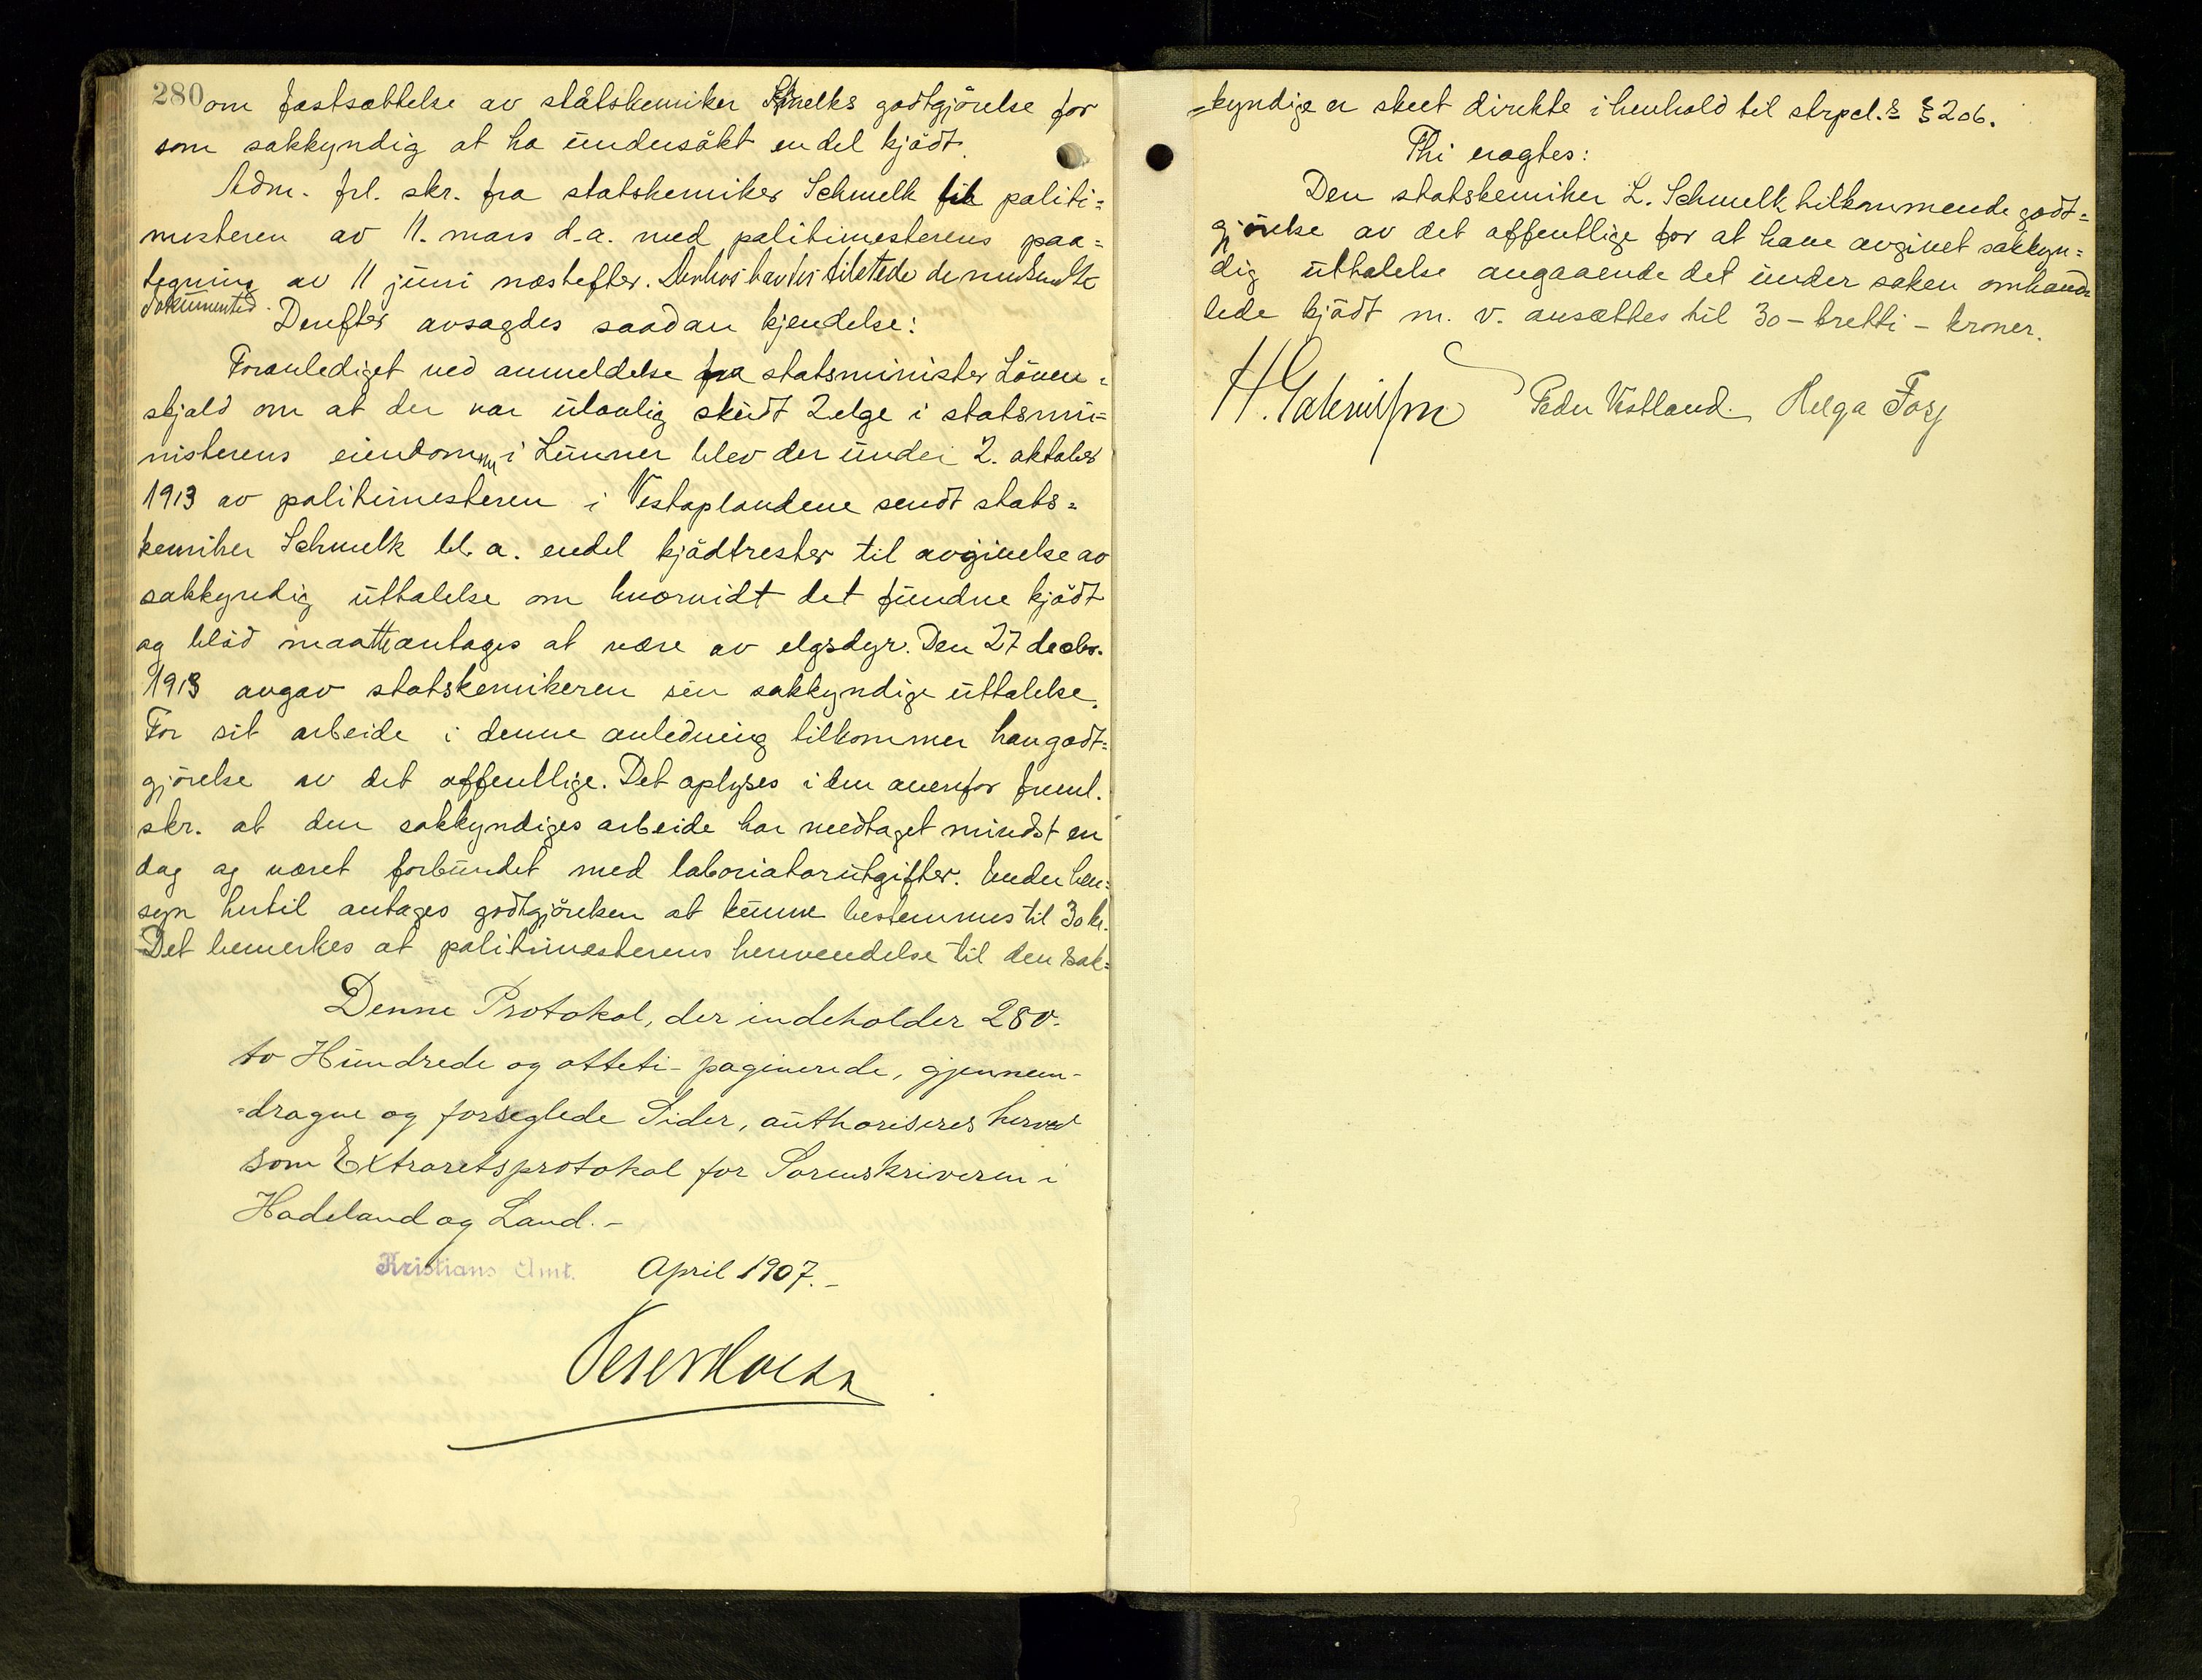 280
om fastsættelse av statskemiker Schmelks godtgjörelse for
som sakkyndig at ha undersökt en del kjödt.
Adm. frl. skr. fra statskemiker Schmelk til politi=
mesteren av 11. mars d.a. med politimesterens paa=
tegning av 11 juni næstefter. Denhos havdes tilstede de nedsendte
dokumenter.
Derefter avsagdes saadan kjendelse:
Foranlediget ved anmeldelse fra statsminister Löven=
skjold om at der var ulovlig skudt 2 elge i statsmi=
nisterens eiendommer i Lunner blev der under 2. oktober
1913 av politimesteren i Vestoplandene sendt stats=
kemiker Schmelk bl. a. endel kjödtrester til avgivelse av
sakkyndig uttalelse om hvorvidt det fundne kjödt
og blod maatte antages at være av elgsdyr. Den 27 decbr.
1913 avgav statskemikeren sin sakkyndige uttalelse.
For sit arbeide i denne anledning tilkommer han godt=
gjörelse av det offentlige. Det oplyses i den ovenfor freml.
skr. at den sakkyndiges arbeide har medtaget mindst en
dag og været forbundet med laboriatorutgifter. Under hen=
syn hertil antages godtgjörelsen at kunne bestemmes til 30 kr.
Det bemerkes at politimesterens henvendelse til den sak=
Denne Protokol, der indeholder 280-
to Hundrede og otteti- paginerede, gjennem-
=dragne og forseglede Sider, authoriseres herved
som Extraretsprotokol for Sorenskriveren i
Hadeland og Land.-
Kristians Amt. April 1907.-
=kyndige er skeet direkte i henhold til strpcl.s § 206.
Thi eragtes:
Den statskemiker L. Schmelk tilkommende godt=
gjörelse av det offentlige for at have avgivet sakkyn=
dig uttalelse angaaende det under saken omhand=
lede kjödt m. v. ansættes til 30 - tretti - kroner.
Peder Vestland. Helga